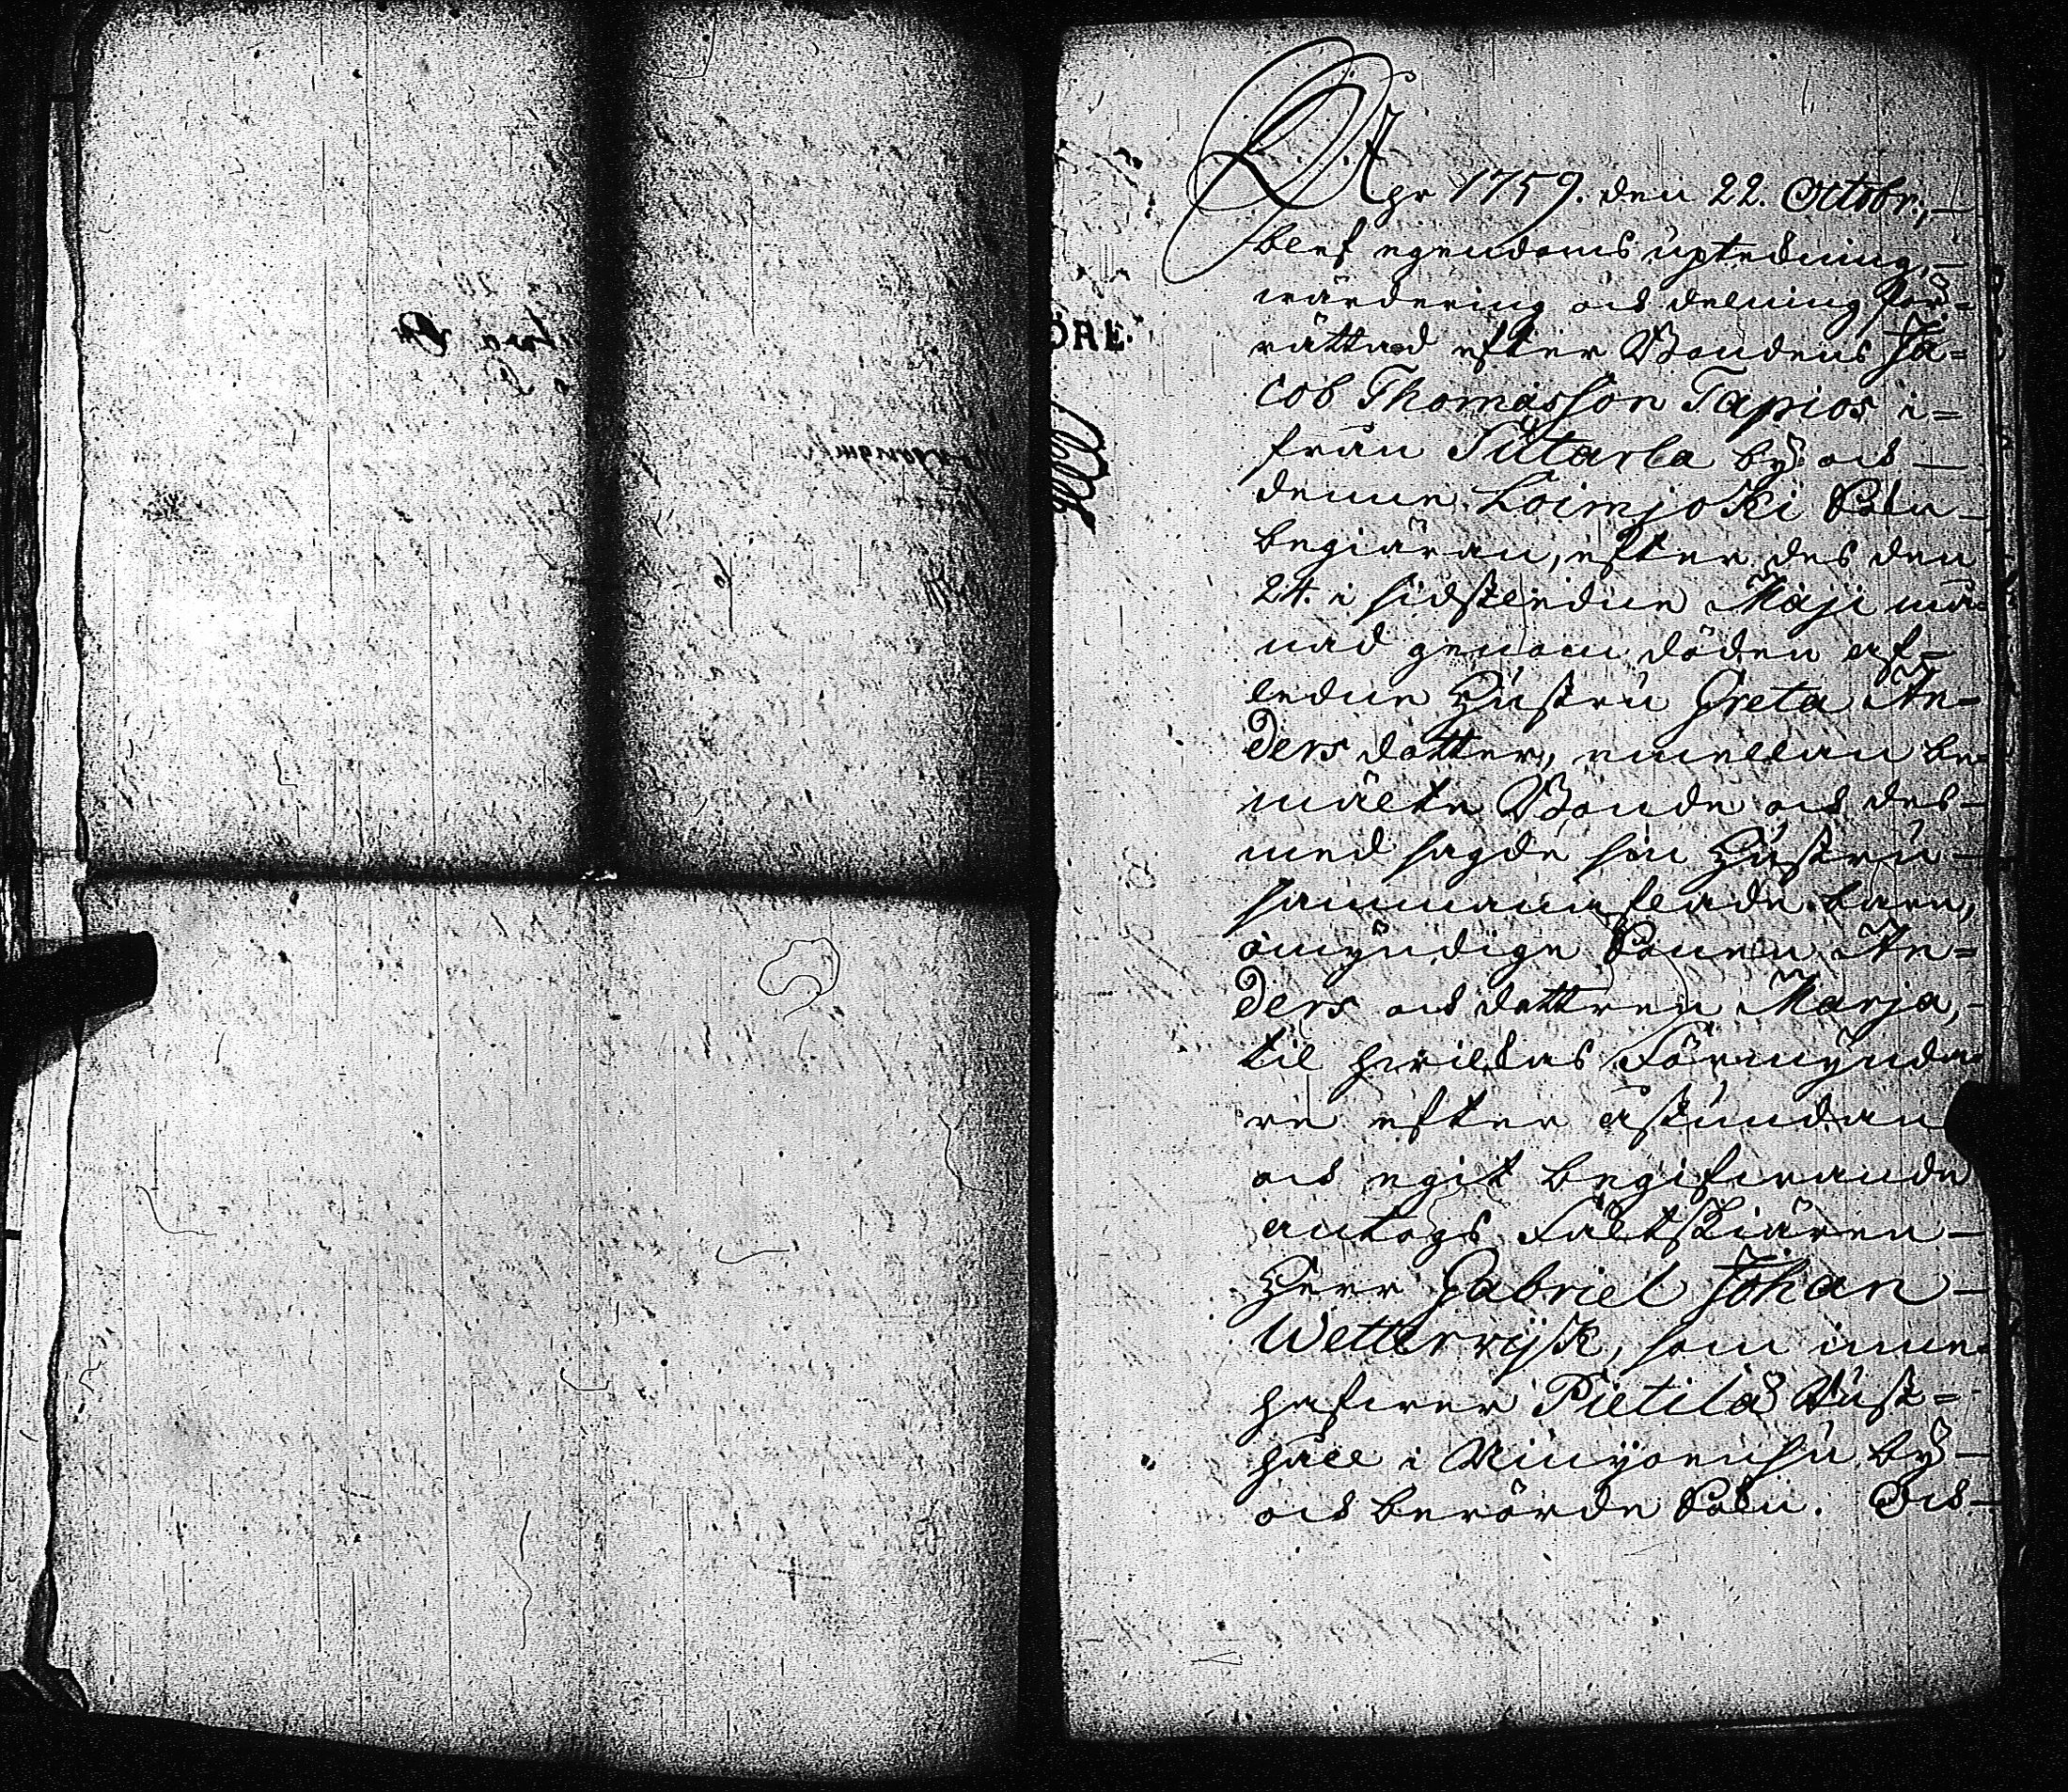 ÖRE.
Åhr 1759. den 22. Octobr, —
blef egendoms uptekning, —
wärdering och delning för=
rättad efter Bondens Ja=
cob Thomasson Tapios i=
från Sutarla by och —
denne Loimjoki Sokn —
begiäran, efter des den
24. i sidstledne Maji må=
nad genom döden af=
ledne Hustru Greta An=
ders dotter, emellan be=
mälte Bonde och des —
med sagde sin Hustru —
sammanaflade barn,
omyndige Sonen An=
ders och dottren Marja, —
til hwilkas Förmynda=
re efter åstundan
och egit begifwande
antogs Fältskiären —
Herr Gabriel Johan —
Wetterrysk, som inne=
hafwer Pietilä Rust=
håll i Niinijoensu by —
och berörde Sokn. Och —